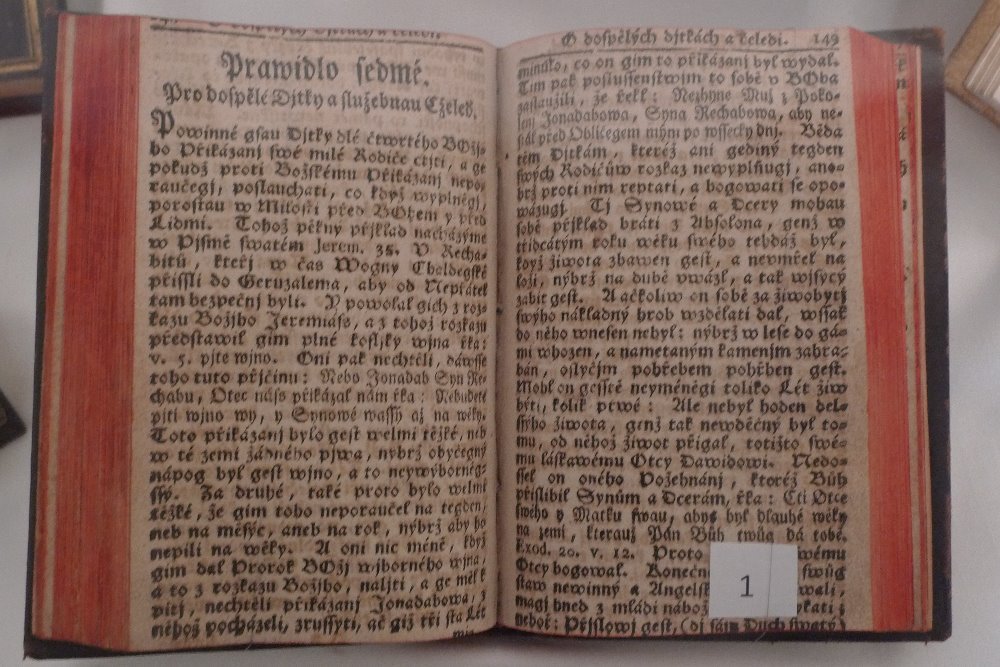 O dospělých Djtkách a čeledi.
Prawidlo sedmé.
Pro dospělé Djtky a služebnau Cželed.
Powinné gsau Djtky dlé čtwrtého BOžj-
ho Přikázanj swé milé Rodiče ctjti, a ge
pokudž proti Božskému Přikázanj nepo-
raučegj, poslauchati, co když wyplněgj,
porostau w Milosti před BOhem y před
Lidmi. Tohož pěkný přjklad nacházýme
w Pjsmě swatém Jerem. 35. V Recha-
bitů, kteřj w čas Wogny Chaldegské
přissli do Geruzalema, aby od Nepřátel
tam bezpečnj byli. Y powolal gich z roz-
kazu Božjho Jeremiáss, a z tohož rozkazu
představil gim plné kofljky wjna řka:
v. 5. pjte wjno. Oni pak nechtěli, dáwsse
toho tuto přjčinu: Nebo Jonadab Syn Re-
chabu, Otec náss přikázal nám řka: Nebudete
pjti wjno wy, y Synowé wassy až na wěky.
Toto přikázanj bylo gest welmi těžké, neb
w té zemi žádného pjwa, nýbrž obyčegný
nápog byl gest wjno, a to neywýborněg-
ssý. Za druhé, také proto bylo welmi
těžké, že gim toho neporaučel na tegden,
neb na měsýc, aneb na rok, nýbrž aby ho
nepili na wěky. A oni nic méně, když
gim dal Prorok BOžj wýborného wjna,
a to z rozkazu Božjho, naljti, a ge měl k
pitj, nechtěli přikázanj Jonadabowa, z
něhož pocházeli, zrussyti, ač giž tři sta Lét
O dospělých djtkách a čeledi. 149
minulo, co on gim to přikázanj byl wydal.
Tjm pak poslussenstwjm to sobě v BOha
zasloužili, že řekl: Nezhyne Muž z Poko-
lenj Jonadabowa, Syna Rechabowa, aby ne-
stál před Obličegem mým po wssecky dnj. Běda
těm Djtkám, kteréž ani gediný tegden
swých Rodičůw rozkaz newyplňugj, ano-
brž proti nim reptati, a bogowati se opo-
wážugj. Tj Synowé a Dcery mohau
sobě přjklad bráti z Absolona, genž w
třidcátým roku wěku swého tehdáž byl,
když žiwota zbawen gest, a neumřel na
loži, nýbrž na dubě vwázl, a tak wjsycý
zabit gest. A ačkoliw on sobě za žiwobytj
swýho nákladný hrob wzdělati dal, wssak
do něho wnesen nebyl: nýbrž w lese do gá-
mi whozen, a nametaným kamenjm zahra-
bán, oslyčjm pohřebem pohřben gest.
Mohl on gesstě neyméněgi toliko Lét žiw
býti, kolik prwé: Ale nebyl hoden del-
ssýho žiwota, genž tak newděčný byl to-
mu, od něhož žiwot přigal, totižto swé-
mu láskawému Otcy Dawidowi. Nedo-
ssel on oného Požehnánj, kteréž Bůh
přislibil Synům a Dcerám, řka: Cti Otce
swého y Matku swau, abys byl dlauhé wěky
na zemi, kterauž Pán Bůh twůg dá tobě.
Exod. 20. v. 12. Proto wému
Otcy bogowal. Konečně swůg
staw newinný a Angelsk wali,
magj hned z mládj nábož ykati;
neboť: Přjslowj gest, (dj sám Duch swatý)
1